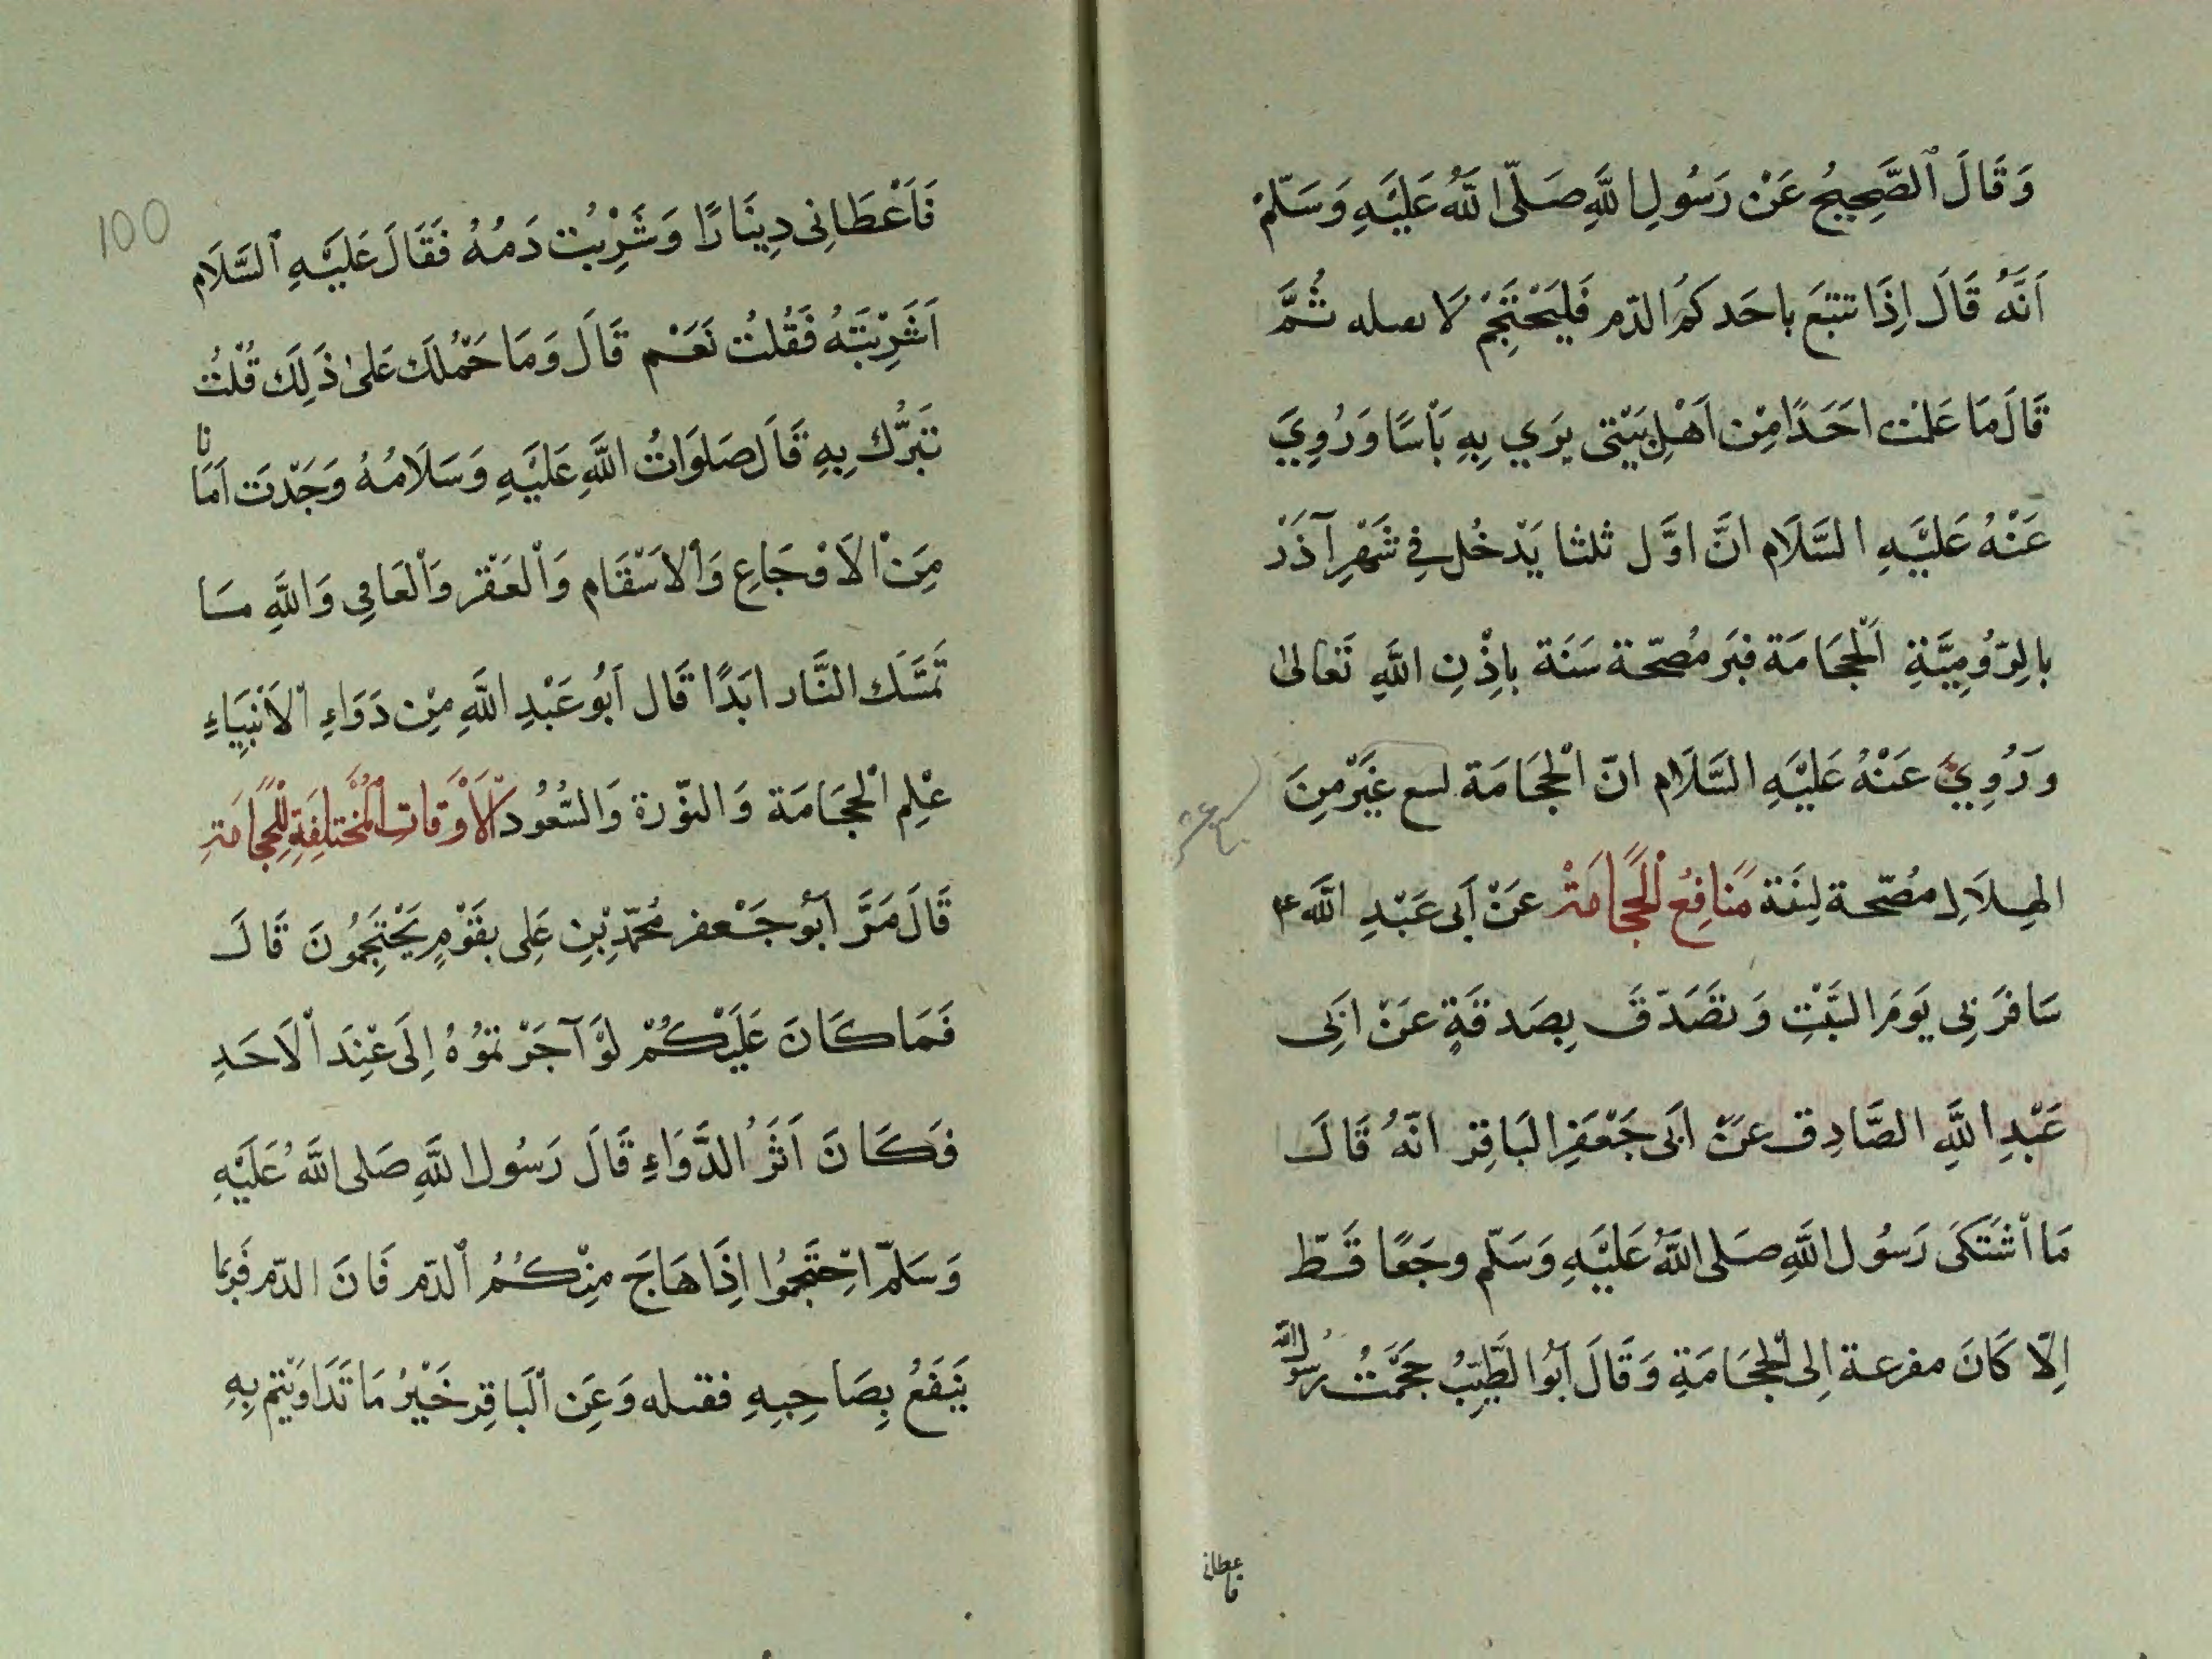 وَقَالَ ٱلصَّحِيحُ عَنْ رَسُولِ اللَّهِ صَلَّى اللَّهُ عَلَيْهِ وَسَلَّمْ
اَنَّهُ قَالَ اِذَا تتبَع باحَدكمُ الدّم فَليَحْتَجِمْ لَا ىصله ثُمَّ
قَالَ مَا عَلمْت احَدًا مِنْ اَهْلِ بَيْتى يرَي بِهِ بَأْسًا وَرُوِيَ
عَنْهُ عَلَيْهِ السَّلَام انَّ اوَّل ثلثا يَدْخُل فِي شَهْرِ آذَرْ
بالرّوُمِيَّةِ اَلْحِجَامَة فبَر مُصَحّة سَنَة باِذْنِ اللَّهِ تَعَالىٰ
وَرُوِيَ عَنْهُ عَلَيْهِ السَّلَام انّ الْحِجَامَة لسع غَيَرْ مِنَ
الهِلَالِ مُصَحّة لِنَفَة مَنَافِعُ لْحِجَامَةْ عَنْ اَبى عَبْدِ اللَّه ع
سَافرَ بِى يَومَ السَّبْتِ وَتصَدّقَ بِصَدقَةٍ عَنْ ابَى
عَبْدِ اللَّهِ الصَّادِق عَنْ ابَى جَعْفَرِ البَاقِرْ انّهُ قَالَ
مَا اشْتَكَى رَسُول اللَّهِ صَلى اللَّهُ عَلَيْهِ وَسَلّم وجَعًا قَطّ
اِلّا كَانَ مفرعة اِلى الْحِجَامَةِ وَقَالَ اَبُوا لطَّيِّبُ حَجَمْتُ رسول الله
فاعطانى
فَاَعْطَانِى دِينَارًا وَشَرِبْت دَمُهُ فَقَالَ عَلَيْهِ ٱلسَّلَام
اَشَرِبْتَهُ فَقُلتُ نَعَم قَالَ وَمَا حَمّلَكَ عَلىٰ ذَلِكَ قُلْتُ
تبَرُّك بِهِ قَالَ صَلوَاتُ اللَّهِ عَلَيْهِ وَسَلَامُهُ وَجَدْتَ اَمَانا
مِنَ الاَوْجَاعِ وَالاَسْقَام وَالْعَقْر وَالْعَامِى وَاللَّهِ مَا
تَمسَّكَ النَّار ابَدًا قَال اَبُو عَبْدِ اللَّهِ مِنْ دَوَاءِ الاَنْبيَاءِ
عْلِم الْحِجَامَة وَالنّوّرة وَالسُّعُود الْاَوْقَاتِ الْمُخْتلِفَةِ لِلْحِجَامَةِ
قَالَ مَرَّ اَبُو جَعْفر مُحَمّد بْنِ عَلِى بقَوْمٍ يَحْتَجِمُونَ قَالَ
فَمَا كَانَ عَلَيْكُمْ لوْ آجَرْتمُوُهُ اِلَى عْنِدَ الْاَحَدِ
فكَانَ اَثَرُ الدَّوَاءِ قَالَ رَسُول اللَّهِ صَلى اللَّهُ عَلَيْهِ
وَسَلمّ احْتَجِمُوا اِذَا هَاجَ مِنْكُمُ ٱلدّم فَانَ الدّم فَربّمَا
يَنبَغُ بِصَاحِبِهِ فقىله وَعَنِ ٱلبَاقِر خَيْرُ مَا تَدَاوَيْتم بِهِ
100